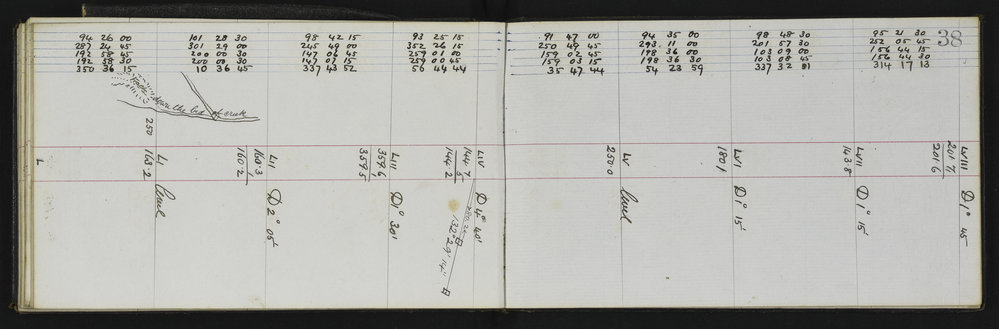 38
94 26 00
287 24 45
192 58 45
192 58 30
350 36 15
101 28 30
301 29 00
200 00 30
200 00 30
10 36 45
98 42 15
245 49 00
147 06 45
147 07 15
337 43 52
93 25 15
352 26 15
259 01 00
259 00 45
56 44 44
91 47 00
250 49 45
159 02 45
159 03 15
35 47 44
94 35 00
293 11 00
198 36 00
198 36 30
54 23 59
98 48 30
201 57 30
103 09 00
103 08 45
337 32 51
95 21 30
252 05 45
156 44 15
156 44 30
314 17 13
down the bed of creek
L
250
LI
163.2
Level
LII
160.3
160.2
D 2° 05'
LIII
359.6
359.5
D 1° 30'
LIV
144.7
5
144.2
D 4° 40'
132° 29' 14"
LV
250.0
Level
LVI
180.1
D 1° 15'
LVII
143.8
D 1° 15'
LVIII
201.7
201.6
D 1° 45